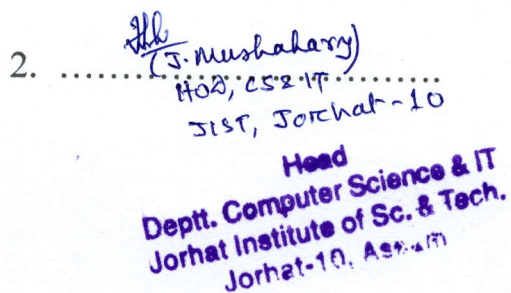 (J. Mushahary)
2. ..............................
HOD, CS & IT
JIST, Jorhat-10
Head
Deptt. Computer Science & IT
Jorhat Institute of Sc. & Tech.
Jorhat-10, Assam